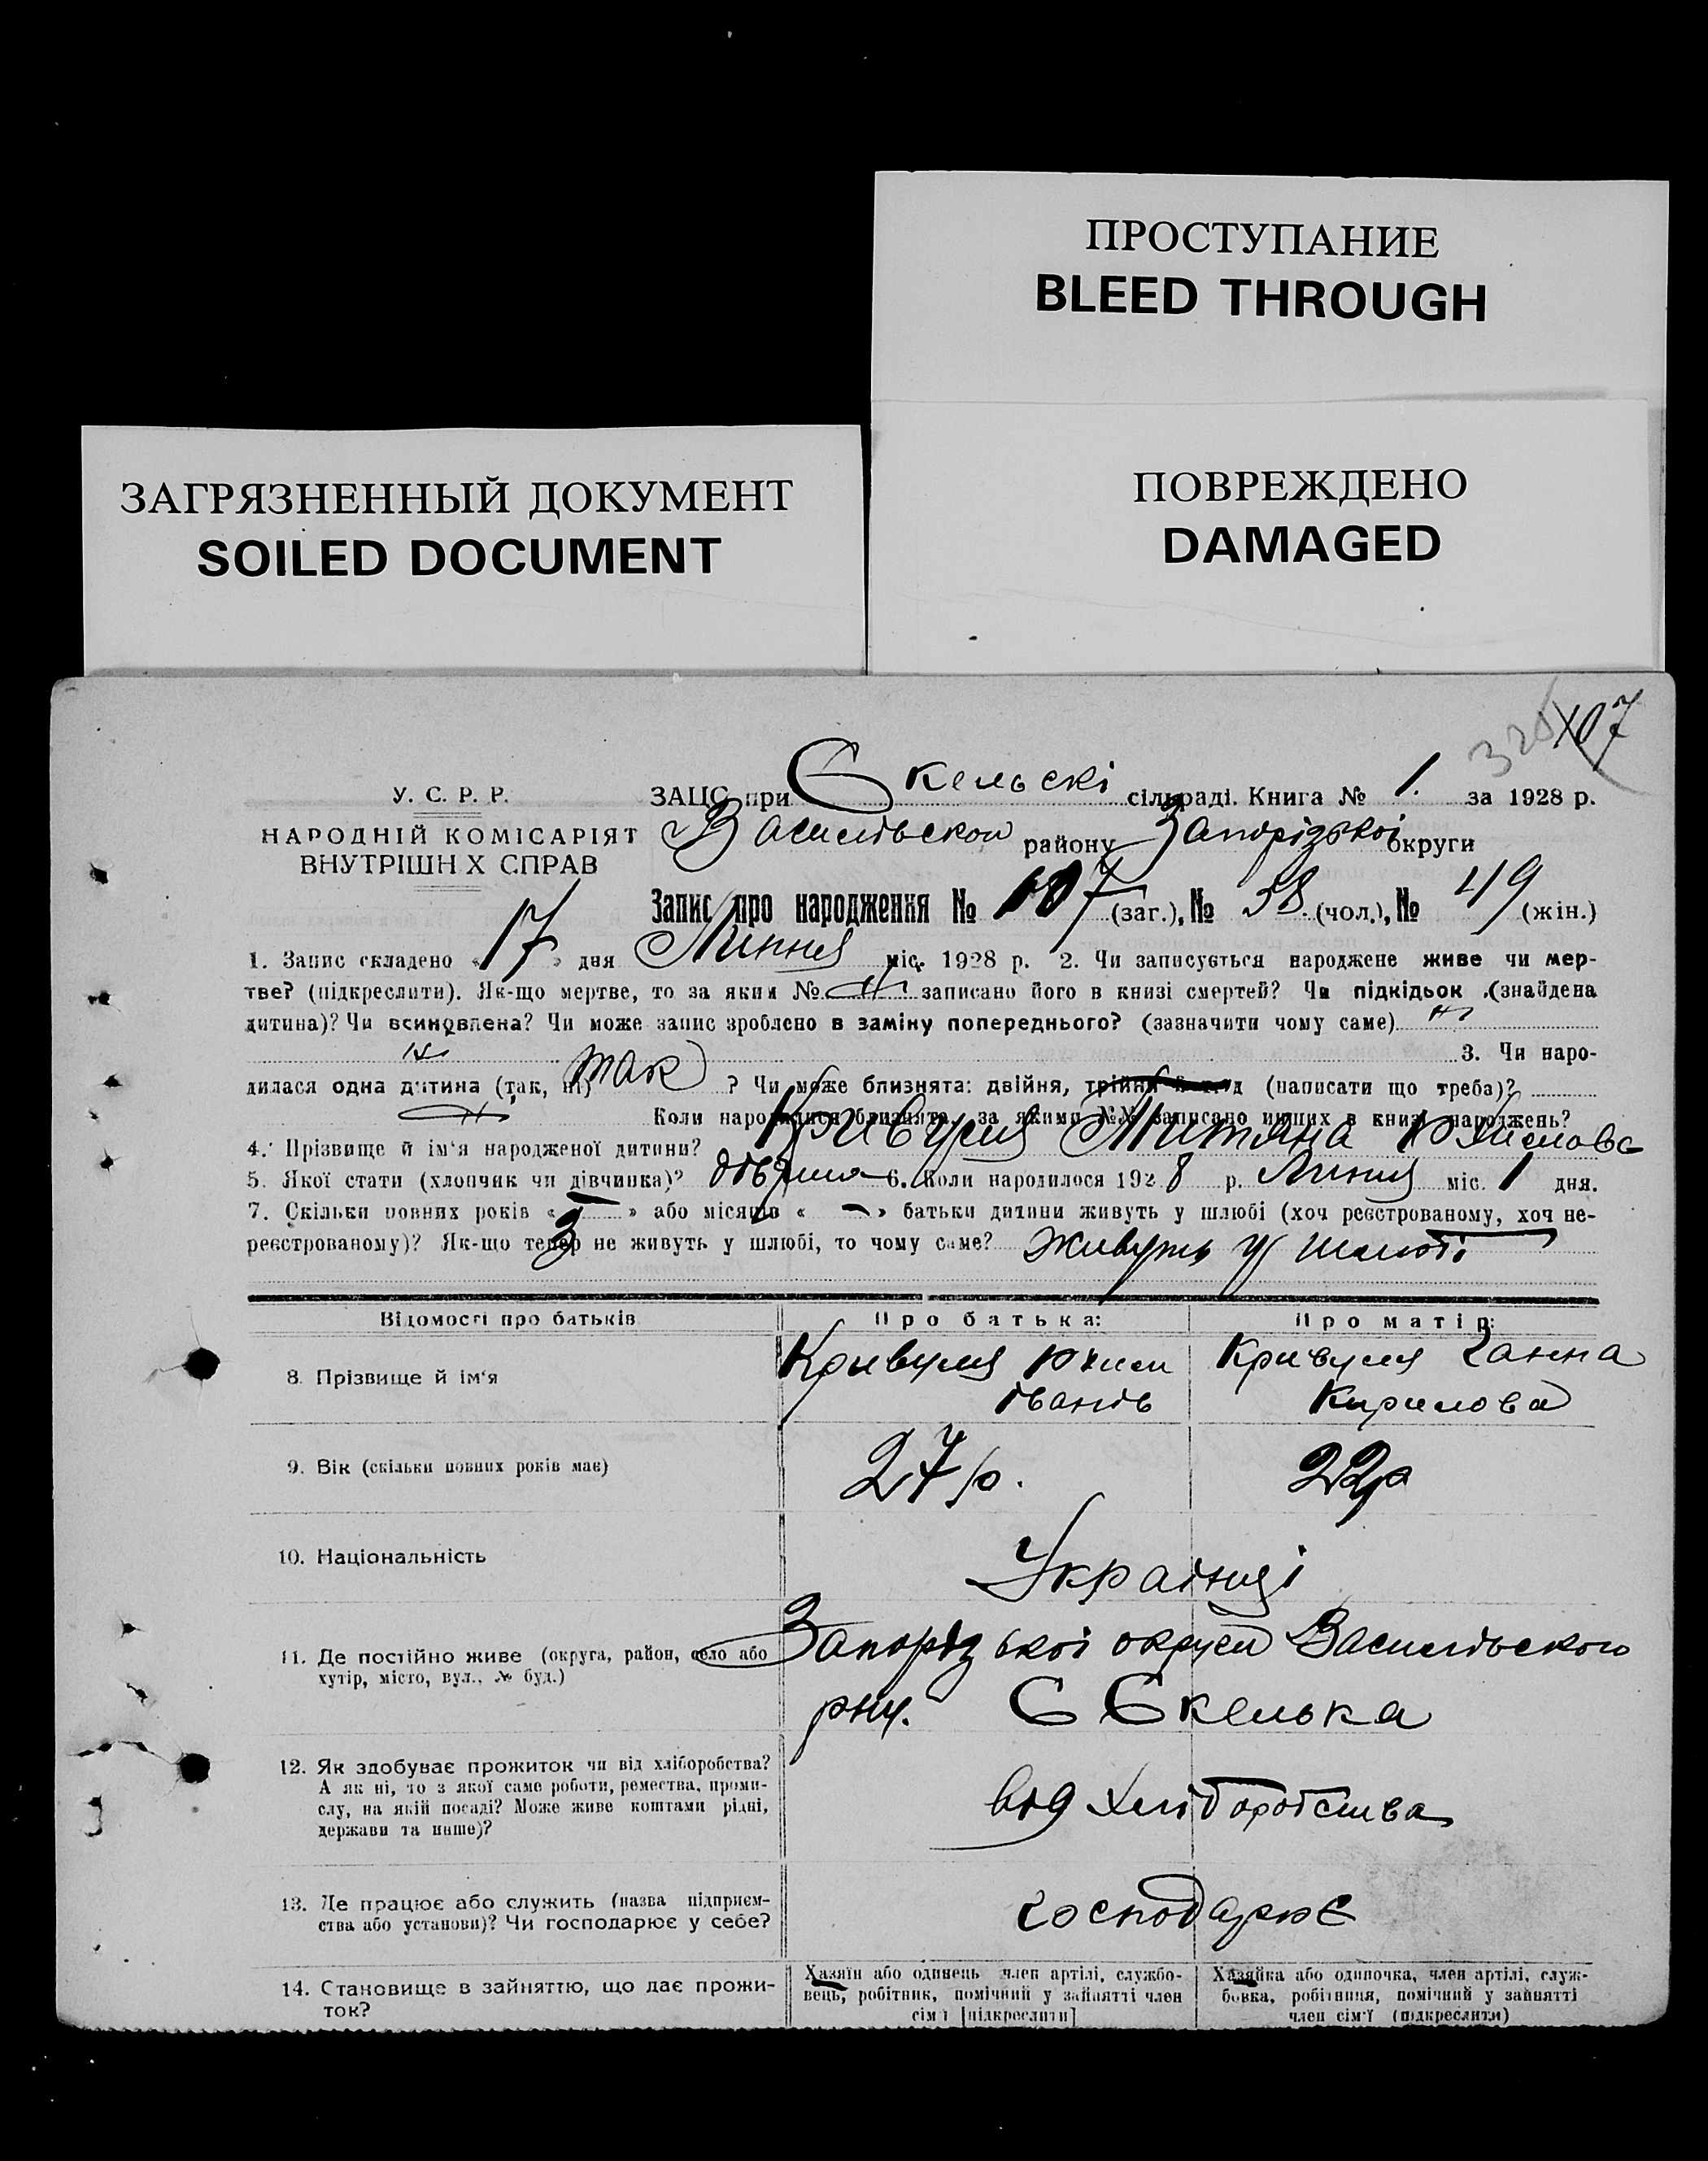 ПРОСТУПАНИЕ
BLEED THROUGH
ЗАГРЯЗНЕННЫЙ ДОКУМЕНТ
SOILED DOCUMENT
ПОВРЕЖДЕНО
DAMAGED
107
У. С. Р. Р.
НАРОДНІЙ КОМІСАРІЯТ
ВНУТРІШН Х СПРАВ
ЗАЦС при Скельскі сільраді. Книга № 1. за 1928 р.
Василівськои району Запорізькоі округи
Запис про народження № 107 (заг.), № 58 (чол.), № 49 (жін.)
1. Запис складено « 17 » дня Липня міс. 1928 р. 2. Чи записується народжене живе чи мер-
тве? (підкреслити). Як-що мертве, то за яким № записано його в книзі смертей? Чи підкідьок (знайдена
дитина)? Чи всиновлена? Чи може запис зроблено в заміну попереднього? (зазначити чому саме)
3. Чи наро-
дилася одна дитина (так, ні) так ? Чи може близнята: двійня, трійня (написати що треба)?
Коли народилися близнята, за якими №№ записано инших в книзі народжень?
4. Прізвище й ім'я народженої дитини? Кривуля
5. Якої стати (хлопчик чи дівчинка)? 6. Коли народилося 1928 р. Липня міс. 1 дня.
7. Скільки повних років « 3 » або місяців « — » батьки дитини живуть у шлюбі (хоч реєстрованому, хоч не-
реєстрованому)? Як-що тепер не живуть у шлюбі, то чому саме? Живуть у шлюбі
Відомості про батьків
Про батька:
Про матір:
8. Прізвище й ім'я
Кривуля
Івані в
Кривуля Ганна
Кирилова
9. Вік (скільки повних років має)
27 р.
22 р
10. Національність
Украінці
11. Де постійно живе (округа, район, село або
хутір, місто, вул., № буд.)
Запорізькоі округи Василівського
рну. С Скелька
12. Як здобуває прожиток чи від хліборобства?
А як ні, то з якої саме роботи, ремества, проми-
слу, на якій посаді? Може живе коштами рідні,
держави та инше)?
від хліборобства
13. Де працює або служить (назва підприєм-
ства або установи)? Чи господарює у себе?
господарює
14. Становище в зайняттю, що дає прожи-
ток?
Хазяїн або одинець член артілі, службо-
вець, робітник, помічний у зайнятті член
сім'ї [підкреслити]
Хазяйка або одиночка, член артілі, служ-
бовка, робітниця, помічний у зайнятті
член сім'ї (підкреслити)